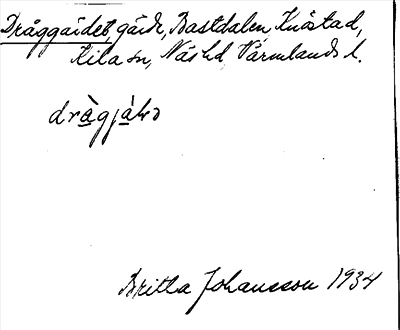 Dråggärdet, gärde, Bastdalen, Knöstad,
Kila sn, Näs hd Värmlands l.
dràgjàḷơ
Britta Johansson 1934